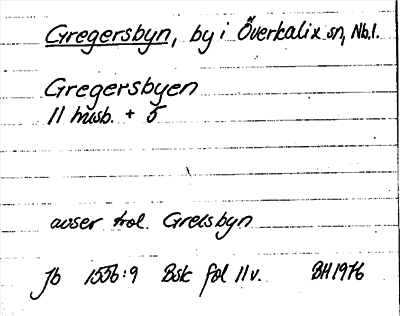 Gregersbyn, by i Överkalix sn, Nb.l.
Gregersbyen
11 husb. + 5
avser trol. Grelsbyn
Jb 1556:9 Bsk fol 11v. BH 1976